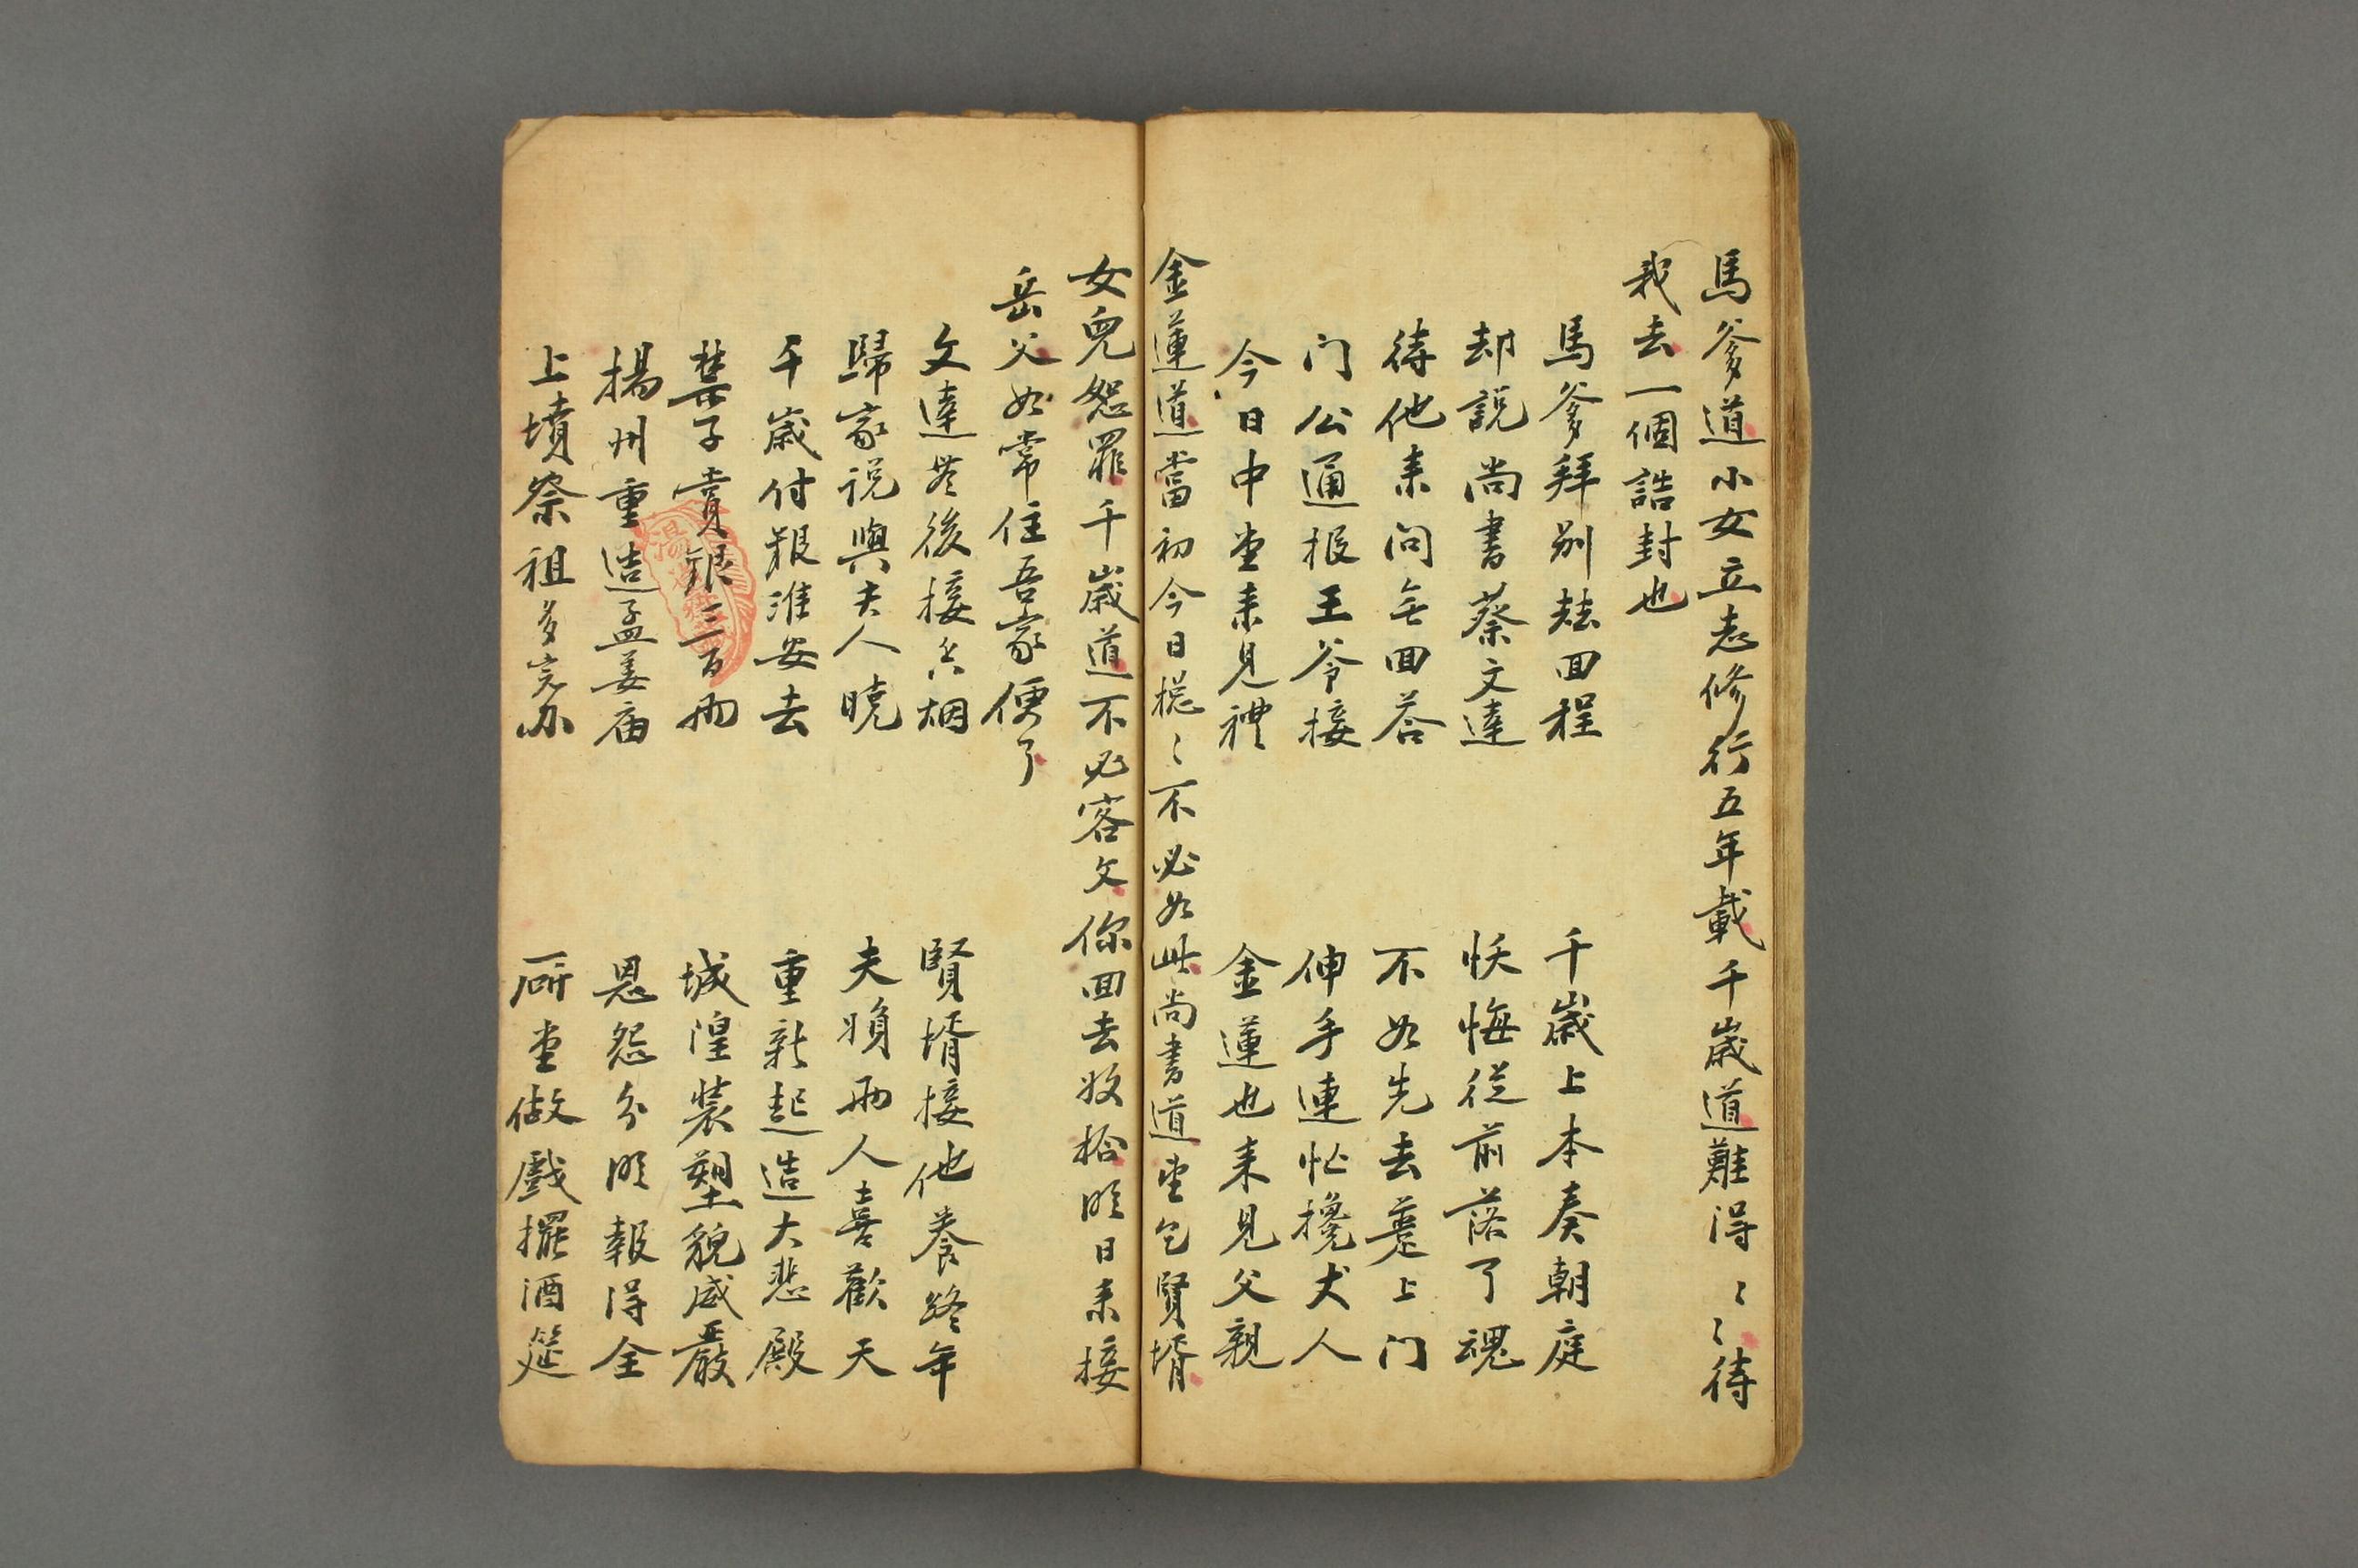 馬爹道小女立志修行五年載千歲道難得〻〻待
我去一個誥封也
馬爹拜別越回程　千歲上本奏朝庭
却說尚書蔡文達　恹悔從前落了魂
待他来問無回答　不如先去𨄮上门
门公通报王爷接　伸手連忙攙犬人
今日中堂来見禮　金蓮也来見父親
金蓮道當初今日挩〻不必如此尚書道望乞賢壻
女兒恕罪千歲道不必客文你回去收拾明日来接
岳父母常住吾家便了
文達老後接香烟　賢壻接他養终年
歸家说與夫人曉　夫婦両人喜歡天
千歲付銀淮安去　重新起造大悲殿
禁子賞銀三百両　城隍装塑貌威嚴
揚州重造孟姜庙　恩怨分明報得全
上墳祭祖多完办　厛堂做戲擺酒筵